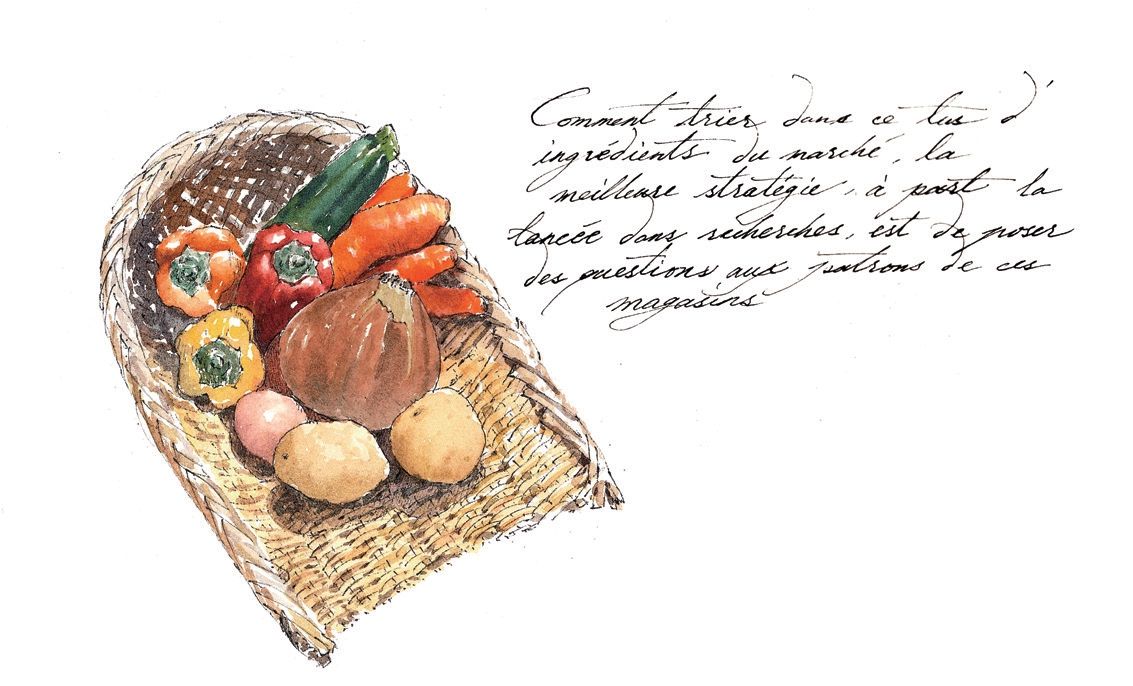 Comment trier dans ce tas d'
ingrédients du marché, la
meilleure stratégie, à part la
lancée dans recherches, est de poser
des questions aux patrons de ces
magasins